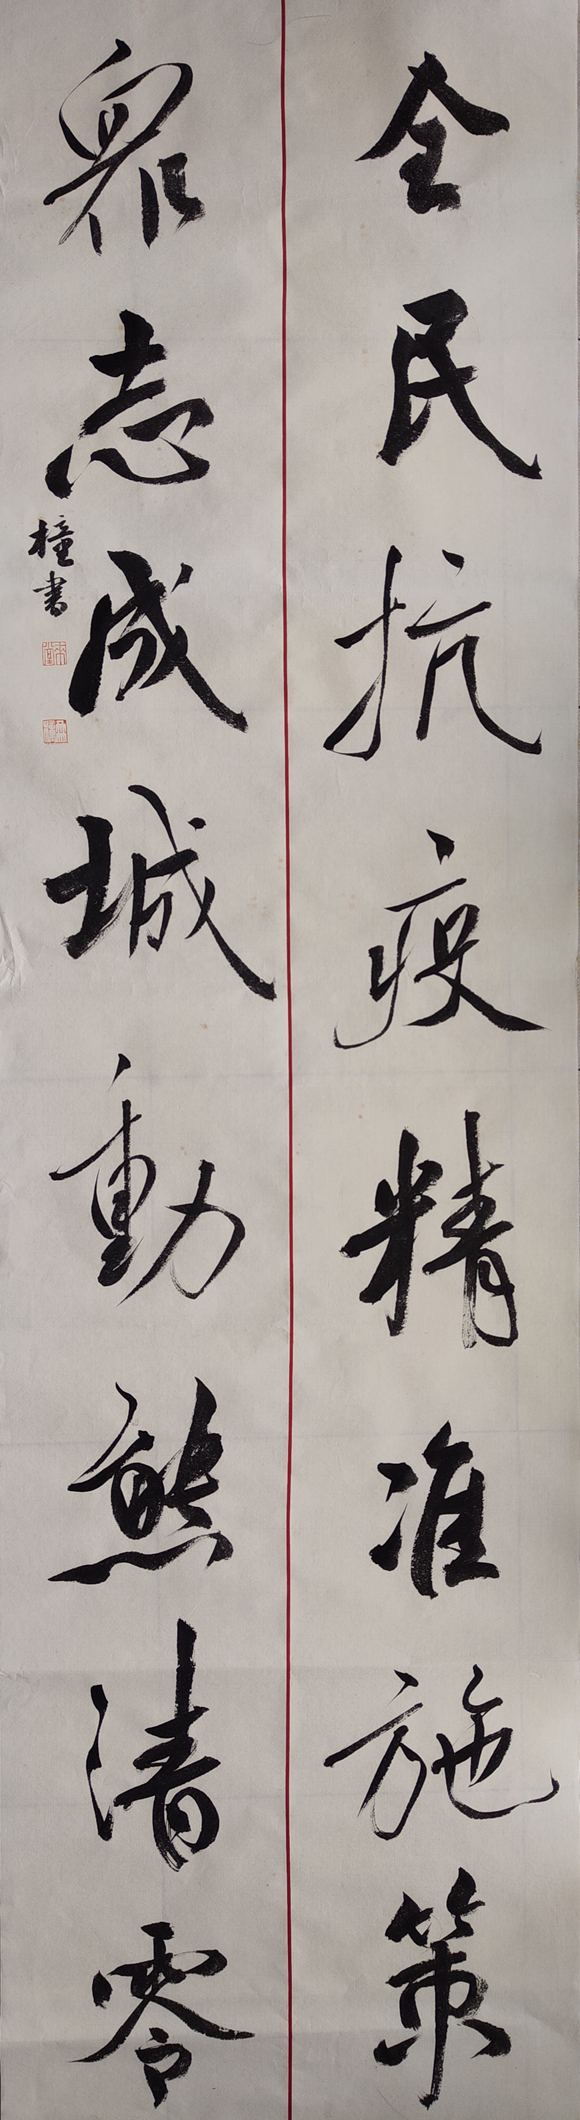 全民抗疫精准施策
眾志成城動態清零
橦書